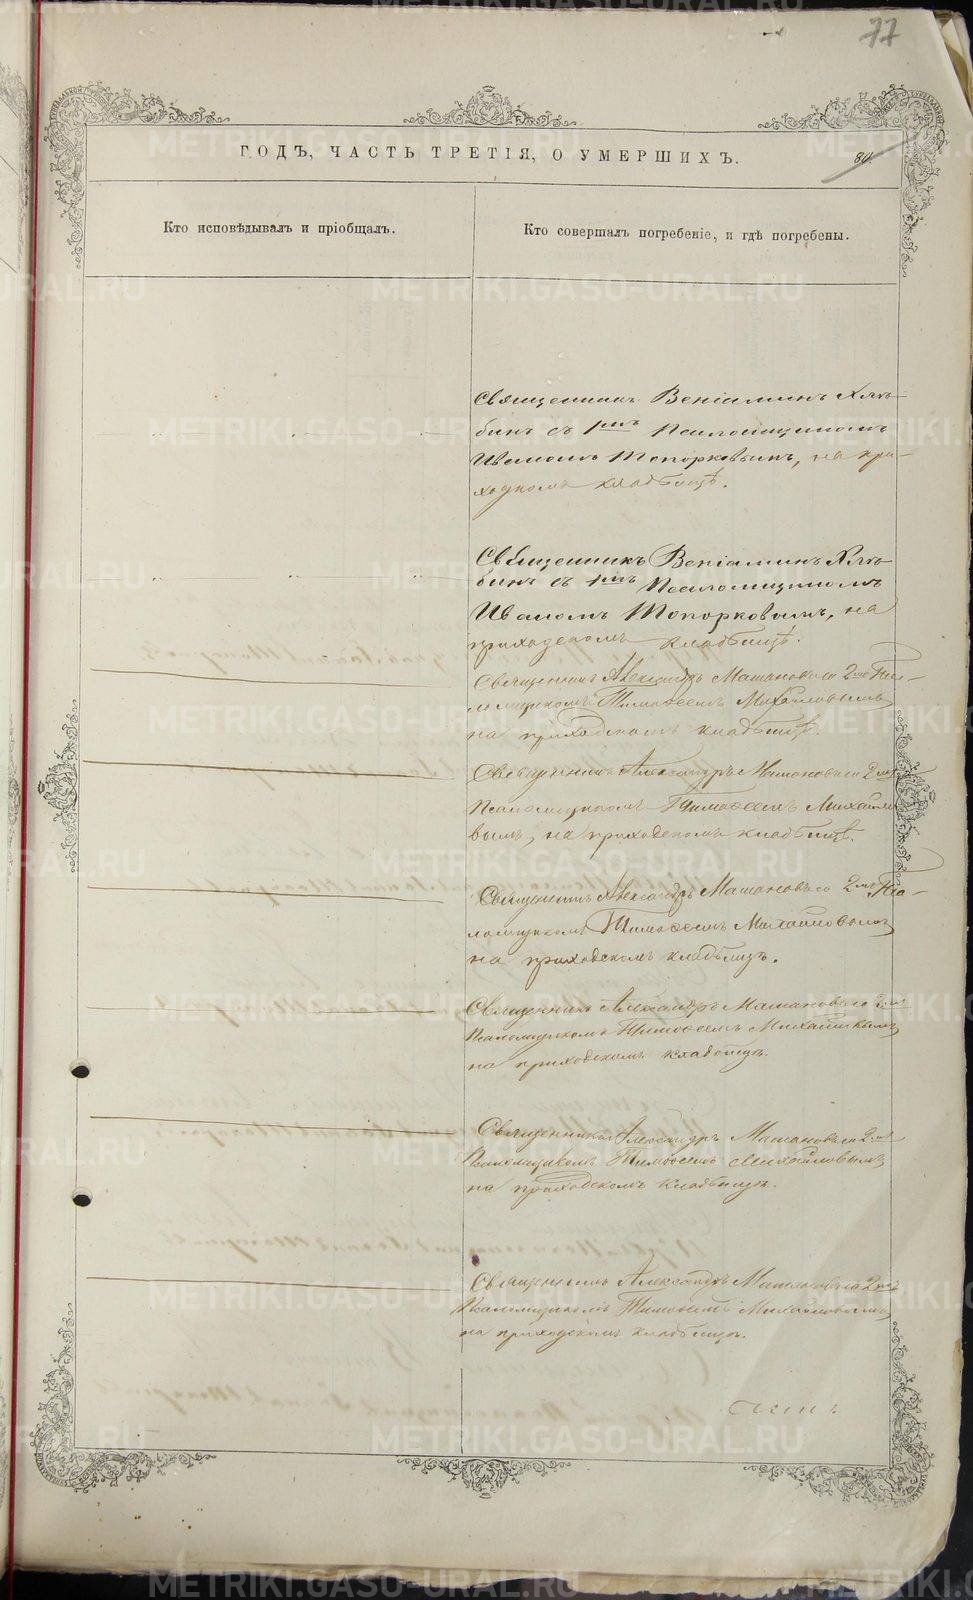 77
ГОДЪ, ЧАСТЬ ТРЕТІЯ, О УМЕРШИХЪ.
80.
Кто исповѣдывалъ и пріобщалъ.
Кто совершалъ погребеніе, и гдѣ погребены.
Священникъ Веніаминъ Хлѣ-
бинъ съ 1мъ Псаломщикомъ
Иваномъ Топорковымъ, на при-
ходскомъ кладбищѣ.
Священникъ Веніаминъ Хлѣ-
бинъ съ 1мъ Псаломщикомъ
Иваномъ Топорковымъ, на
приходскомъ кладбищѣ.
Священникъ Александръ Машановъ со 2мъ Пса-
ломщикомъ Тимофеемъ Михайловымъ
на приходскомъ кладбищѣ.
Священникъ Александръ Машановъ со 2мъ
Псаломщикомъ Тимофеемъ Михайло
вымъ, на приходскомъ кладбищѣ.
Священникъ Александръ Машановъ со 2мъ Пса-
ломщикомъ Тимофеемъ Михайловымъ
на приходскомъ кладбищѣ.
Священникъ Александръ Машановъ со 2мъ
Псаломщикомъ Тимофеемъ Михайловымъ
на приходскомъ кладбищѣ.
Священникъ Александръ Машановъ со 2мъ
Псаломщикомъ Тимофеемъ Михайловымъ
на приходскомъ кладбищѣ.
Священникъ Александръ Машановъ со 2мъ
Псаломщикомъ Тимофеемъ Михайловымъ
на приходскомъ кладбищѣ.
METRIKI.GASO-URAL.RU